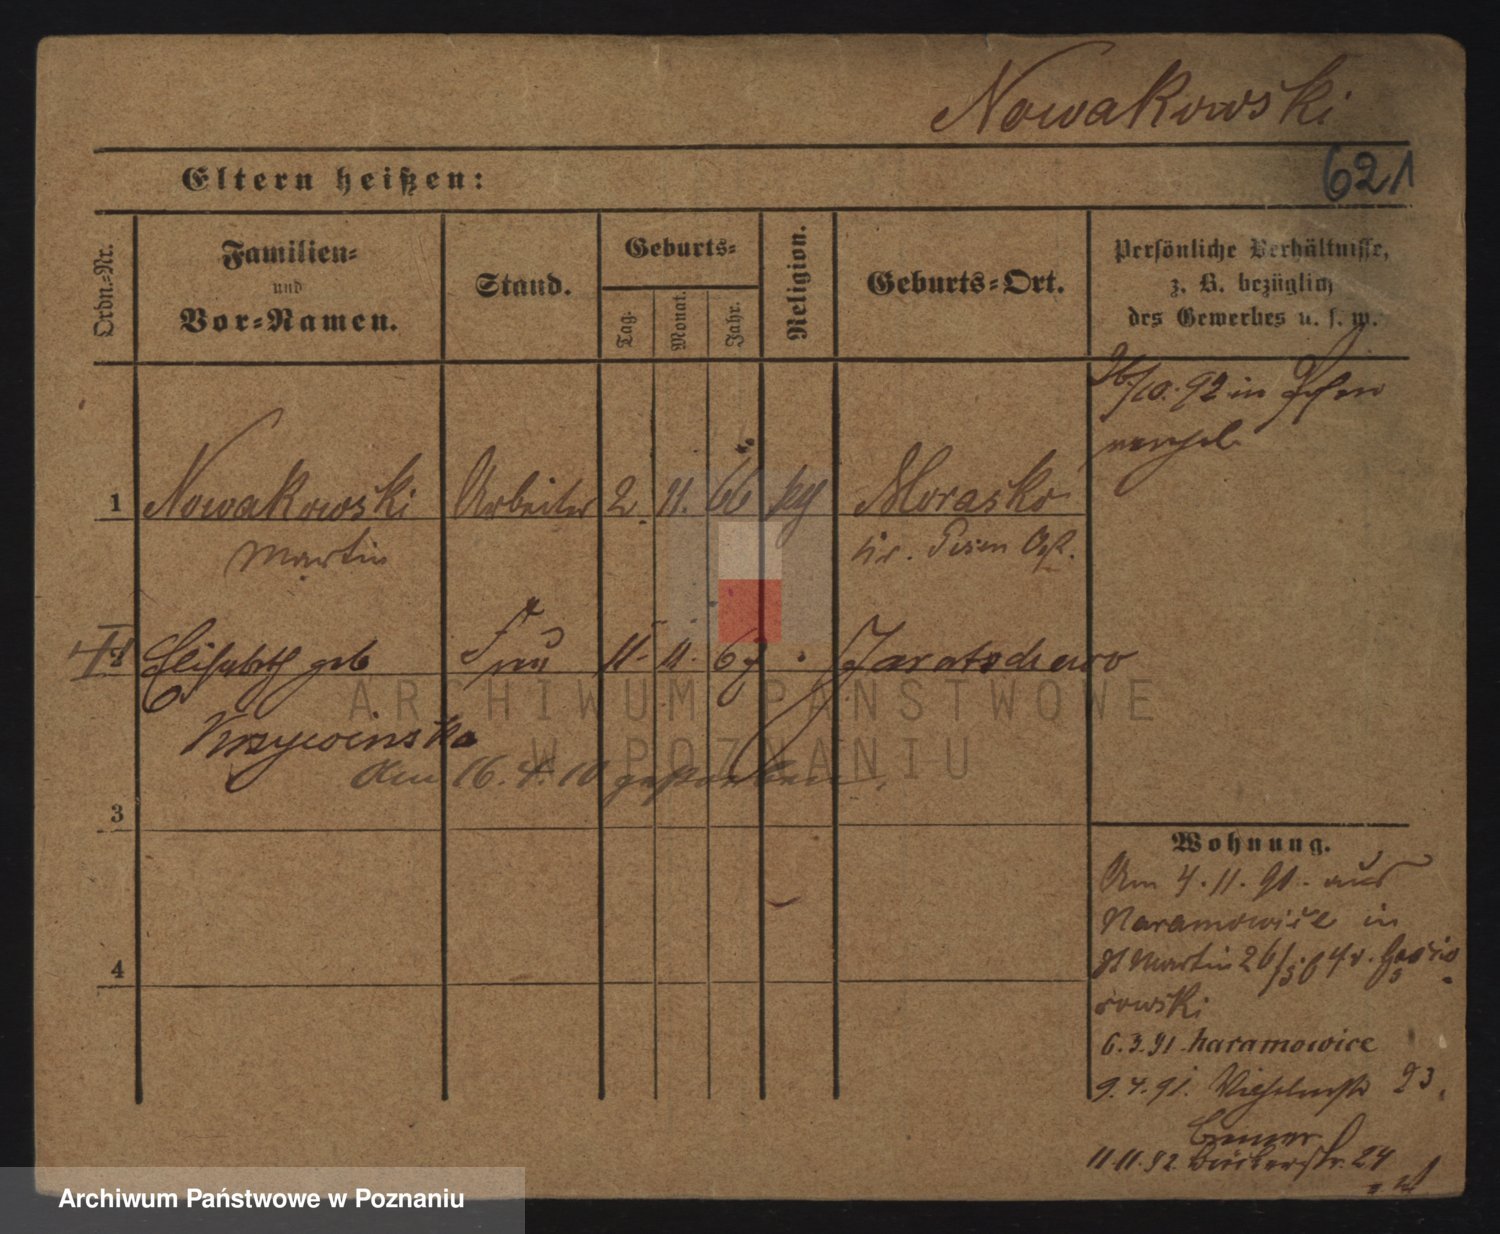 Nowakowski
621
Eltern heißen:
Ordn.-Nr.
Familien-
und
Vor-Namen.
Stand.
Geburts-
Tag.
Monat.
Jahr.
Religion.
Geburts-Ort.
Persönliche Verhältnisse,
z. B. bezüglich
des Gewerbes u. s. w.
/10. 92 in Posen
1 Nowakowski Arbeiter 2. 11. 66 Morasko
Martin Kr. Posen Ost.
Elisabeth geb Frau 11. 11. 67 Jaratschewo
Krzywinska
ARCHIWUM PAŃSTWOWE
W POZNANIU
Am 16. 4. 10 gestorben.
3
4
Wohnung.
Am 4. 11. 90. aus
Naramowice in
St Martin 26/
rowski
6. 3. 91 Naramowice
9. 4. 91. 23.
11. 11. 92. Bäckerstr. 24
Archiwum Państwowe w Poznaniu